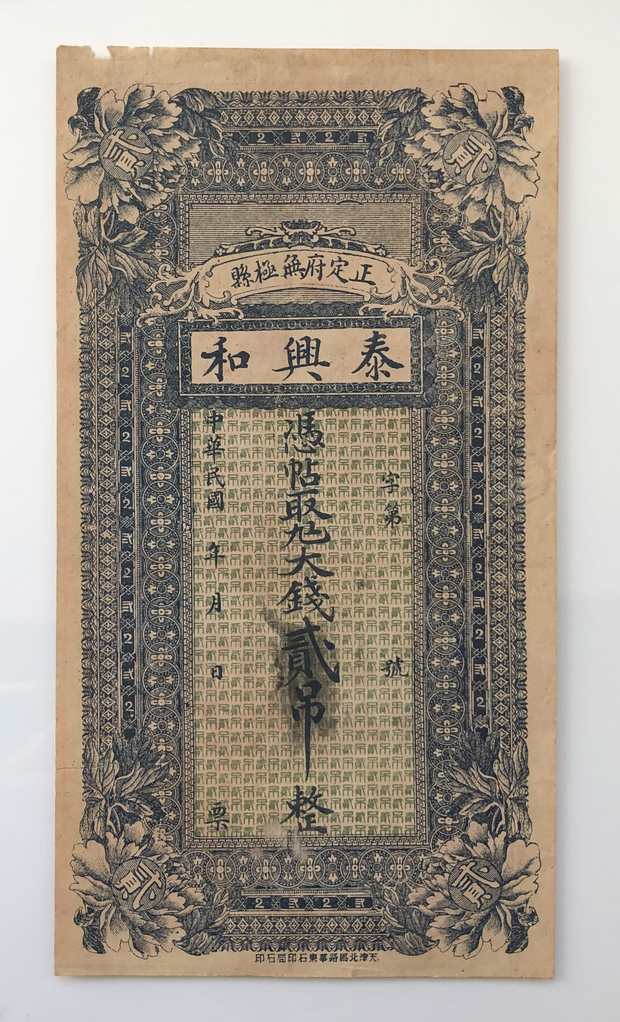 貳
貳
2 貳 2 貳 2
正定府無極縣
泰興和
字第 號
憑帖取九大錢貳吊整
中華民國 年 月 日 票
貳
貳
2 貳 2 貳 2
天津北馬路華東石印局石印